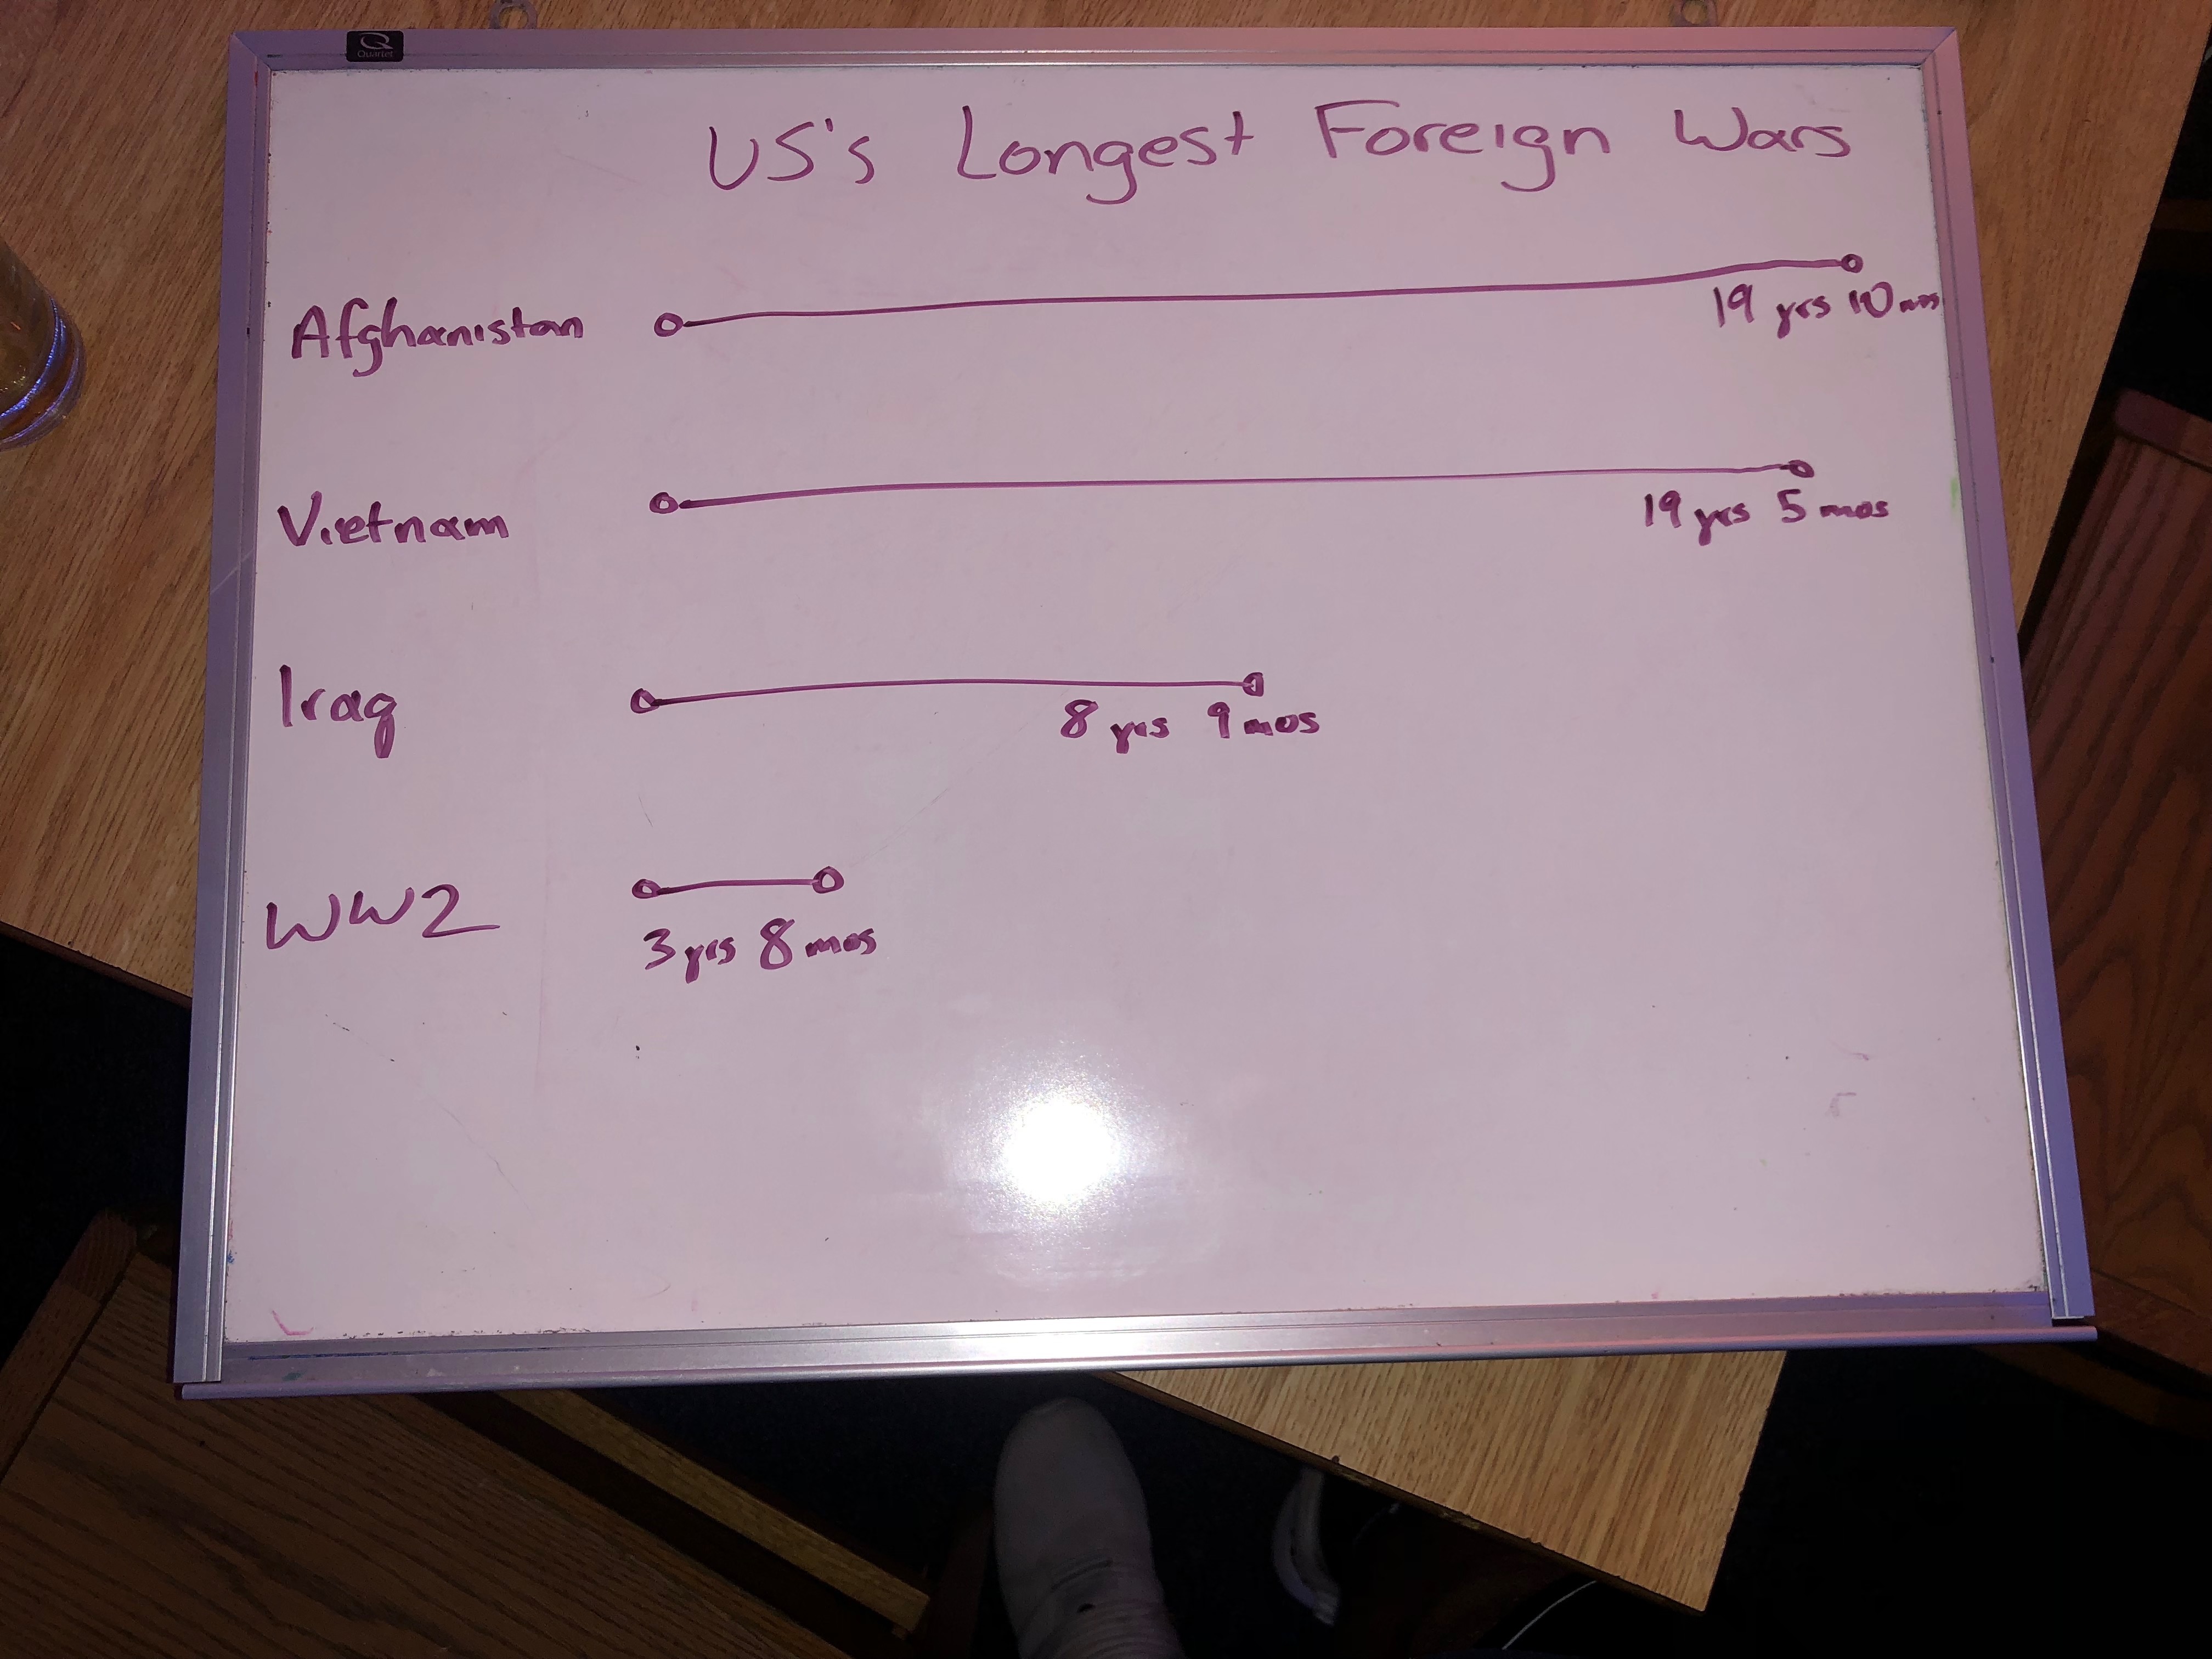 Quartet
US's Longest Foreign Wars
Afghanistan
19 yrs 10 mos
Vietnam
19 yrs 5 mos
Iraq
8 yrs 9 mos
WW2
3 yrs 8 mos